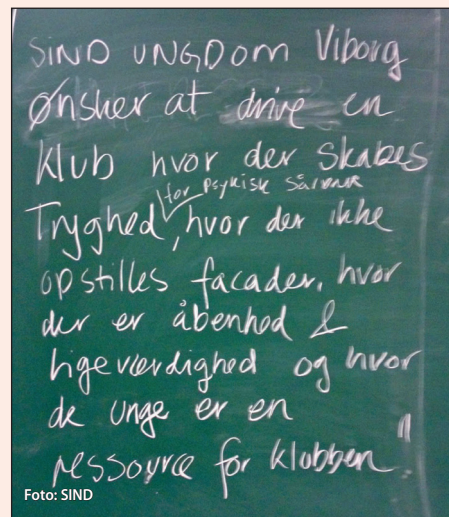 SIND UNGDOM Viborg
Ønsker at drive en
Klub hvor der skabes
for psykisk sårbare
Tryghed, hvor der ikke
opstilles facader, hvor
der er åbenhed &
ligeværdighed og hvor
de unge er en
ressource for klubben"
Foto: SIND